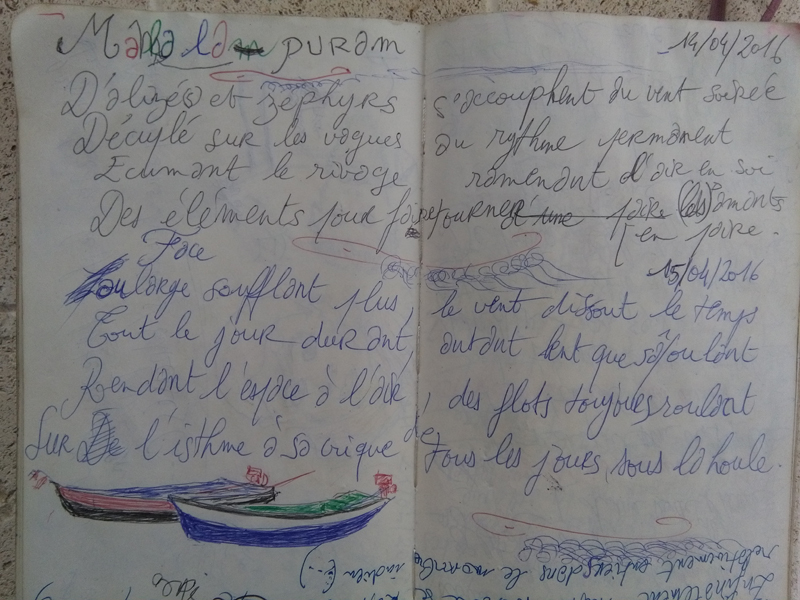 Mahabalampuram
14/04/2016
D'alizé(s) et zéphyrs s'accouphent du vent soirée
Décuplé sur les vagues au rythme permanent
Ecumant le rivage ramenant d'air en soi
Des éléments pour faire tourner d'une paire (des) amants
en paire.
15/04/2016
Face
au large soufflant plus, le vent dissout le temps
Tout le jour durant, autant lent que saoulant
Rendant l'espace à l'air, des flots toujours roulant
Sur l'isthme à sa crique, de tous les jours, sous la houle.
relativement entier dans le
indien (...)